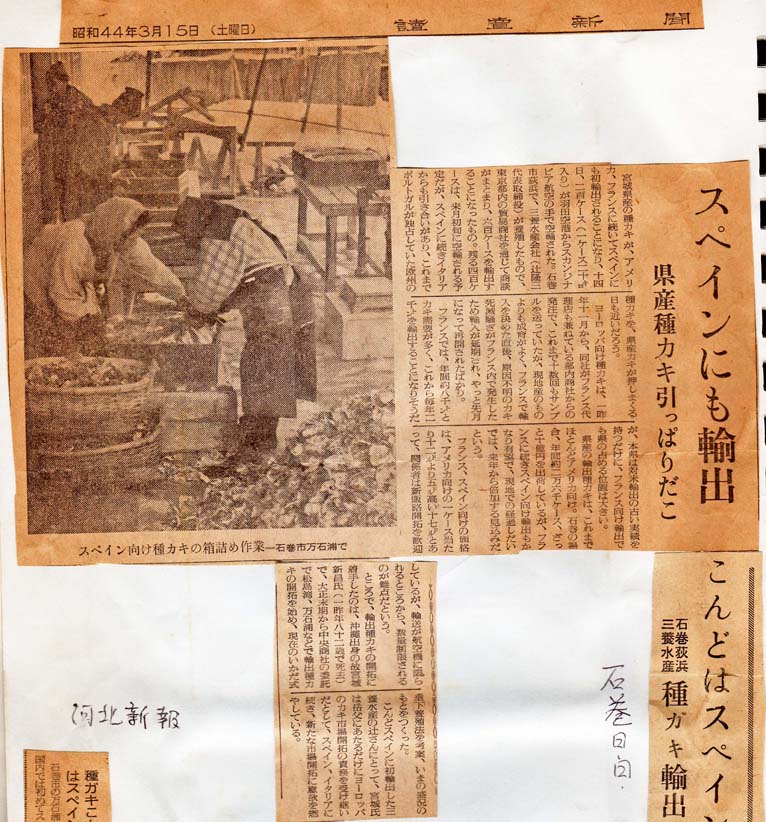 昭和44年3月15日 (土曜日)
讀賣新聞
スペインにも輸出
県産種カキ引っぱりだこ
宮城県産の種カキが、アメリ
カ、フランスに続いてスペインに
も初輸出されることになり、十四
日、二百ケース(一ケース二十㌔
入り)が羽田空港からスカンジナ
ビア航空の手で空輸された。石巻
市荻浜で、三養水産会社(辻隆二
代表取締役)が養殖したもので、
東京都内の貿易商社を通じて商談
がまとまり、六百ケースを輸出す
ることになったもの。残る四百ケ
ースは、来月初旬に空輸される予
定だが、スペインに続きイタリア
からも引き合いがあり、これまで
ポルトガルが独占していた欧州の
種カキを、県産カキが押しまくる
日も近いだろう。
ヨーロッパ向け種カキは、一昨
年十一月から、同社がフランス代
理店も兼ねている都内商社からの
発注で、これまで十数回もサンプ
ルを送っていたが、現地産のもの
よりも成育がよく、フランスで輸
入を決めた直後、原因不明のカキ
死滅騒ぎがフランス内で発生した
ため輸入が延期され、やっと先月
になって再開されたばかり。
フランスでは、年間約八千㌧と
カキ需要が多く、これから毎年二
千㌧を輸出することになりそうだ
が、本県は対米輸出の古い実績を
持つだけに、フランス向け輸出で
も県の占める位置は大きい。
県産の輸出種カキは、これまで
ほとんどアメリカ向け。石巻の場
合、年間約二万六千ケース、ざっ
と十億円を出荷しているが、フラ
ンスに続きスペイン向け輸出もか
なり有望で、現地での経過しだい
では、来年から倍加する見込みだ
という。
フランス、スペイン向けの価格
は、アメリカ向けの一ケース当た
り十二㌦より五㌦高い十七㌦とあ
って、関係者は新販路開拓を歓迎
スペイン向け種カキの箱詰め作業―石巻市万石浦で
しているが、輸送が航空機に限ら
れるところから、数量制限される
のが難点だという。
ところで、輸出種カキの開拓に
着手したのは、沖縄出身の故宮城
新昌氏(一昨年八十二歳で死去)
で、大正末期から中央商社の委託
で松島湾、万石浦などで輸出種カ
キの開拓を始め、現在のいかだ式
垂下養殖法を考案、いまの盛況の
もとをつくった。
こんどスペインに初輸出した三
養水産の辻さんにとって、宮城氏
は岳父にあたるだけにヨーロッパ
のカキ市場開拓の責務を受け継い
だとして、スペイン、イタリアに
続き、新たな市場開拓に意欲を燃
やしている。
こんどはスペイン
石巻荻浜
三養水産
種ガキ輸出
石巻日日.
河北新報
種ガキこ
はスペイ
石巻市の万石浦
国内では初めてス